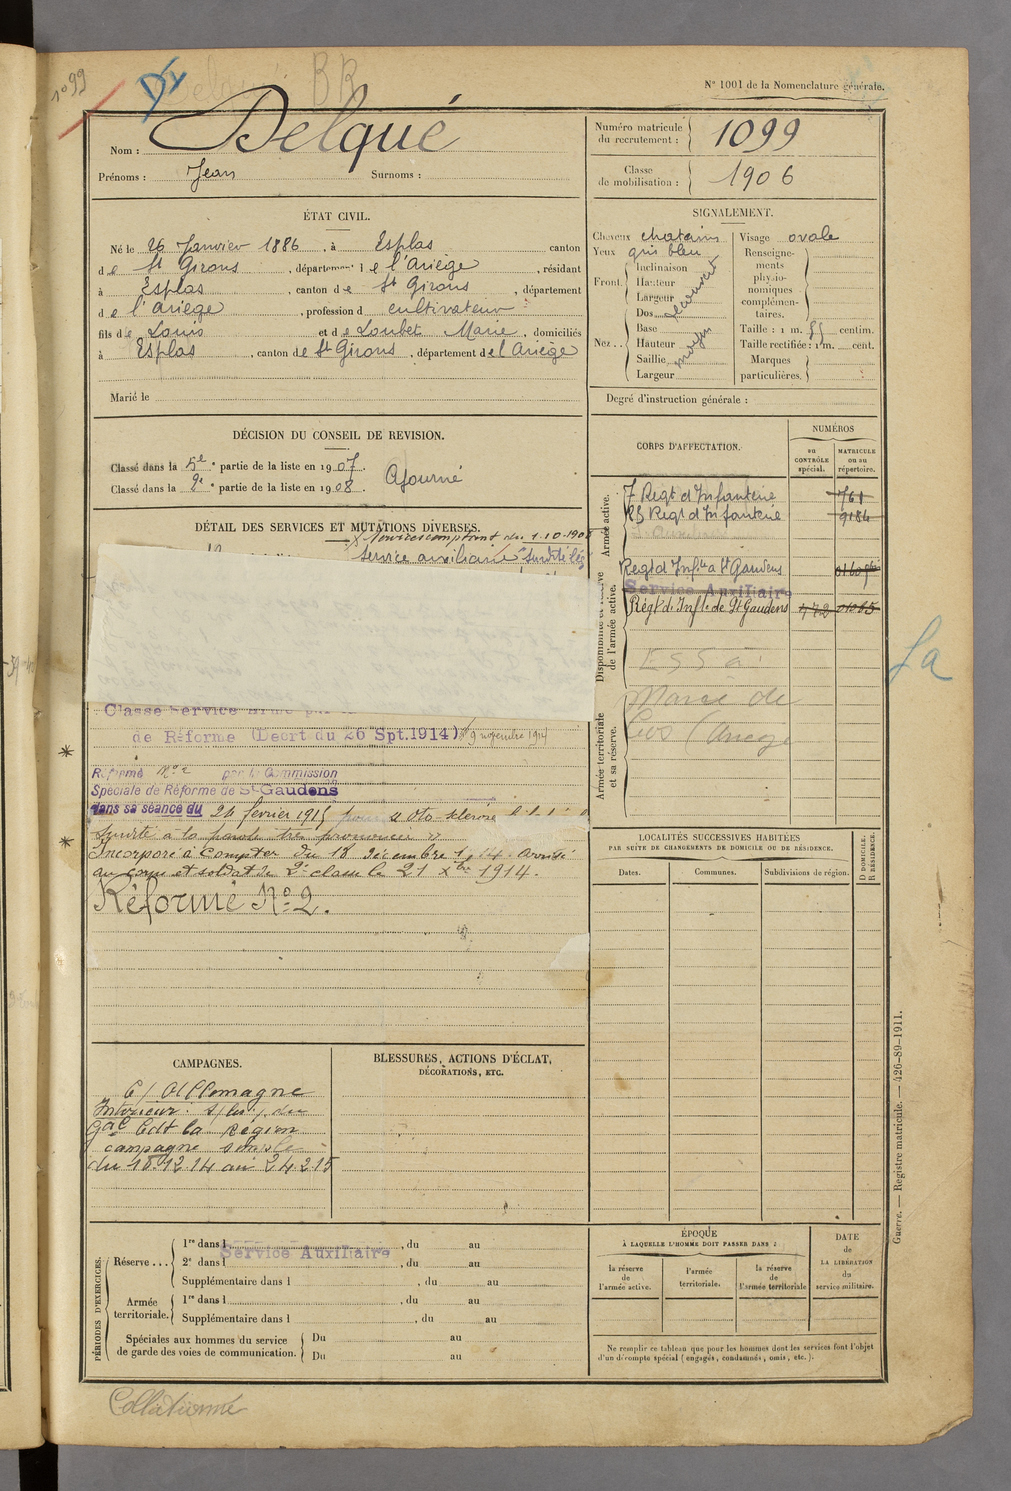 1099
BR
N° 1001 de la Nomenclature générale.
Nom : Delqué
Prénoms : Jean Surnoms :
Numéro matricule du recrutement : 1099
Classe de mobilisation : 1906
ÉTAT CIVIL.
Né le 26 Janvier 1886, à Esplas canton
de St Girons, département de l'Ariège, résidant
à Esplas, canton de St Girons, département
de l'Ariege, profession d cultivateur
fils de Louis et de Loubet Marie, domiciliés
à Esplas, canton de St Girons, département de l'Ariège
Marié le
SIGNALEMENT.
Cheveux chatains
Yeux gris bleu
Front. Inclinaison
Hauteur
Largeur
découvert
Nez.. Dos
Base
Hauteur
Saillie
Largeur
moyen
Visage ovale
Renseignements physionomiques complémentaires.
Taille : 1 m. 55 centim.
Taille rectifiée : 1 m. cent.
Marques particulières.
Degré d'instruction générale :
DÉCISION DU CONSEIL DE REVISION.
Classé dans la 5e partie de la liste en 1907.
Classé dans la 2e partie de la liste en 1908.
Ajourné
DÉTAIL DES SERVICES ET MUTATIONS DIVERSES.
Services comptant du 1-10-1908
Service auxiliaire
Classé Service Armé par
de Réforme (Décrt du 26 Spt.1914) 9 novembre 1914
Réformé N° 2 par la Commission
Spéciale de Réforme de St Gaudens
dans sa séance du 24 février 1915 pour « Oto-sclérose
Surdité à la parole très prononcée »
Incorporé à compter du 18 décembre 1914. Arrivé
au corps et soldat de 2e classe le 21 Xbre 1914.
Réformé N° 2.
CORPS D'AFFECTATION.
NUMÉROS
au CONTRÔLE spécial.
MATRICULE ou au répertoire.
Armée active.
7 Regt d'Infanterie 761
Regt d'Infanterie 9184
Disponibilité et réserve de l'armée active.
Regt d'Infie à St Gaudens
Service Auxiliaire
Régt d'Infie de St Gaudens 472
Armée territoriale et sa réserve.
Fa
LOCALITÉS SUCCESSIVES HABITÉES
PAR SUITE DE CHANGEMENTS DE DOMICILE OU DE RÉSIDENCE.
Dates.
Communes.
Subdivisions de région.
D DOMICILE. R RÉSIDENCE.
CAMPAGNES.
C/ Allemagne
Intérieur
Gal Cdt la Région
campagne simple
du 18.12.14 au 24.2.15
BLESSURES, ACTIONS D'ÉCLAT,
DÉCORATIONS, ETC.
PÉRIODES D'EXERCICES.
Réserve... 1re dans l , du au
Service Auxiliaire
2e dans l , du au
Supplémentaire dans l , du au
Armée territoriale. 1re dans l , du au
Supplémentaire dans l , du au
Spéciales aux hommes du service de garde des voies de communication. Du au
Du au
ÉPOQUE
À LAQUELLE L'HOMME DOIT PASSER DANS :
la réserve de l'armée active.
l'armée territoriale.
la réserve de l'armée territoriale
DATE de LA LIBÉRATION du service militaire.
Ne remplir ce tableau que pour les hommes dont les services font l'objet
d'un décompte spécial (engagés, condamnés, omis, etc.).
Guerre. — Registre matricule. — 426-89-1911.
Collationné